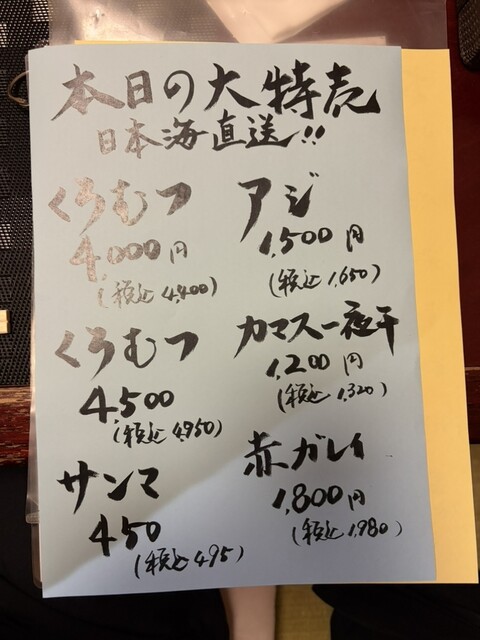 本日の大特売
日本海直送!!
くろむつ
4,000円
(税込4,400)
くろむつ
4,500
(税込4,950)
サンマ
450
(税込495)
アジ
1,500円
(税込1,650)
カマス一夜干
1,200円
(税込1,320)
赤ガレイ
1,800円
(税込1,980)